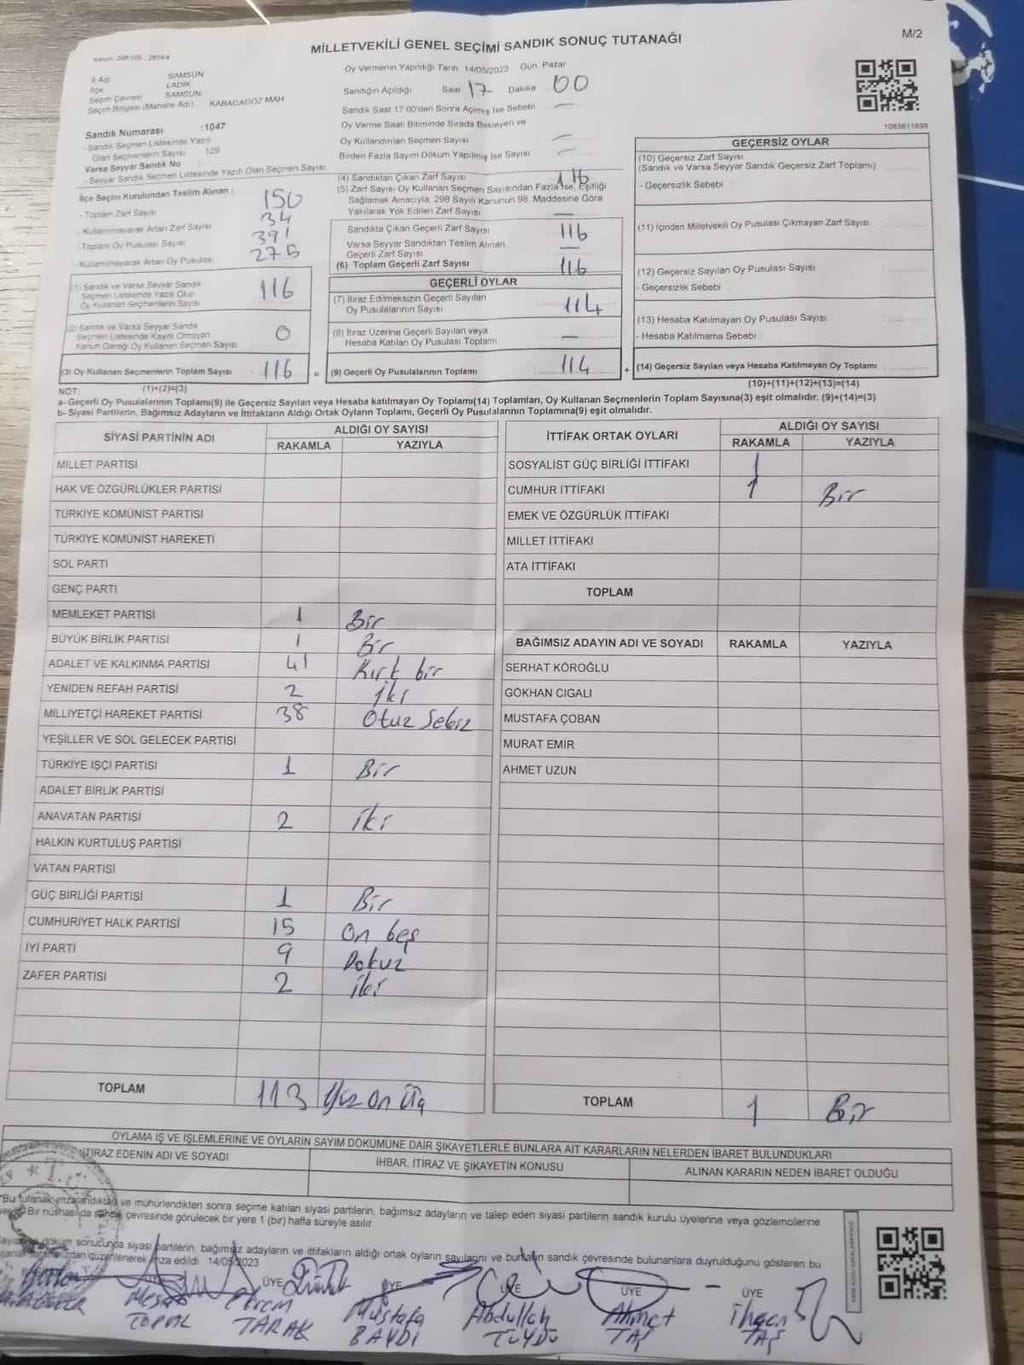 MİLLETVEKİLİ GENEL SEÇİMİ SANDIK SONUÇ TUTANAĞI
M/2
İl Adı SAMSUN
İlçe LADİK
Seçim Çevresi SAMSUN
Seçim Bölgesi (Mahalle Adı) KABACAGÖZ MAH
Sandık Numarası :1047
- Sandık Seçmen Listesinde Yazılı
Olan Seçmenlerin Sayısı 129
Varsa Seyyar Sandık No
- Seyyar Sandık Seçmen Listesinde Yazılı Olan Seçmen Sayısı
İlçe Seçim Kurulundan Teslim Alınan :
- Toplam Zarf Sayısı 150
- Kullanılmayarak Artan Zarf Sayısı 34
- Toplam Oy Pusulası Sayısı 391
- Kullanılmayarak Artan Oy Pusulası 275
(1) Sandık ve Varsa Seyyar Sandık
Seçmen Listesinde Yazılı Olup
Oy Kullanan Seçmenlerin Sayısı 116
(2) Sandık ve Varsa Seyyar Sandık
Seçmen Listesinde Kaydı Olmayan
Kanun Gereği Oy Kullanan Seçmen Sayısı 0
(3) Oy Kullanan Seçmenlerin Toplam Sayısı 116 =
(1)+(2)=(3)
Oy Vermenin Yapıldığı Tarih 14/05/2023 Gün: Pazar
Sandığın Açıldığı Saat 17 Dakika 00
Sandık Saat 17.00'den Sonra Açılmış İse Sebebi —
Oy Verme Saati Bitiminde Sırada Bekleyen ve
Oy Kullandırılan Seçmen Sayısı —
Birden Fazla Sayım Döküm Yapılmış İse Sayısı —
(4) Sandıktan Çıkan Zarf Sayısı 116
(5) Zarf Sayısı Oy Kullanan Seçmen Sayısından Fazla İse, Eşitliği
Sağlamak Amacıyla, 298 Sayılı Kanunun 98. Maddesine Göre
Yakılarak Yok Edilen Zarf Sayısı —
Sandıkta Çıkan Geçerli Zarf Sayısı 116
Varsa Seyyar Sandıktan Teslim Alınan
Geçerli Zarf Sayısı —
(6) Toplam Geçerli Zarf Sayısı 116
GEÇERLİ OYLAR
(7) İtiraz Edilmeksizin Geçerli Sayılan
Oy Pusulalarının Sayısı 114
(8) İtiraz Üzerine Geçerli Sayılan veya
Hesaba Katılan Oy Pusulası Toplamı —
(9) Geçerli Oy Pusulalarının Toplamı 114 +
1083611699
GEÇERSİZ OYLAR
(10) Geçersiz Zarf Sayısı
(Sandık ve Varsa Seyyar Sandık Geçersiz Zarf Toplamı)
- Geçersizlik Sebebi
(11) İçinden Milletvekili Oy Pusulası Çıkmayan Zarf Sayısı
(12) Geçersiz Sayılan Oy Pusulası Sayısı
- Geçersizlik Sebebi
(13) Hesaba Katılmayan Oy Pusulası Sayısı
- Hesaba Katılmama Sebebi
(14) Geçersiz Sayılan veya Hesaba Katılmayan Oy Toplamı
(10)+(11)+(12)+(13)=(14)
NOT:
a- Geçerli Oy Pusulalarının Toplamı(9) ile Geçersiz Sayılan veya Hesaba Katılmayan oy Toplamı(14) Toplamları, Oy Kullanan Seçmenlerin Toplam Sayısına(3) eşit olmalıdır. (9)+(14)=(3)
b- Siyasi Partilerin, Bağımsız Adayların ve İttifakların Aldığı Ortak Oyların Toplamı, Geçerli Oy Pusulalarının Toplamına(9) eşit olmalıdır.
SİYASİ PARTİNİN ADI ALDIĞI OY SAYISI
RAKAMLA YAZIYLA
MİLLET PARTİSİ
HAK VE ÖZGÜRLÜKLER PARTİSİ
TÜRKİYE KOMÜNİST PARTİSİ
TÜRKİYE KOMÜNİST HAREKETİ
SOL PARTİ
GENÇ PARTİ
MEMLEKET PARTİSİ 1 Bir
BÜYÜK BİRLİK PARTİSİ 1 Bir
ADALET VE KALKINMA PARTİSİ 41 Kırk bir
YENİDEN REFAH PARTİSİ 2 İki
MİLLİYETÇİ HAREKET PARTİSİ 38 Otuz Sekiz
YEŞİLLER VE SOL GELECEK PARTİSİ
TÜRKİYE İŞÇİ PARTİSİ 1 Bir
ADALET BİRLİK PARTİSİ
ANAVATAN PARTİSİ 2 iki
HALKIN KURTULUŞ PARTİSİ
VATAN PARTİSİ
GÜÇ BİRLİĞİ PARTİSİ 1 Bir
CUMHURİYET HALK PARTİSİ 15 On beş
İYİ PARTİ 9 Dokuz
ZAFER PARTİSİ 2 iki
TOPLAM 113 Yüz on üç
İTTİFAK ORTAK OYLARI ALDIĞI OY SAYISI
RAKAMLA YAZIYLA
SOSYALİST GÜÇ BİRLİĞİ İTTİFAKI 1
CUMHUR İTTİFAKI 1 Bir
EMEK VE ÖZGÜRLÜK İTTİFAKI
MİLLET İTTİFAKI
ATA İTTİFAKI
TOPLAM
BAĞIMSIZ ADAYIN ADI VE SOYADI RAKAMLA YAZIYLA
SERHAT KÖROĞLU
GÖKHAN CIGALI
MUSTAFA ÇOBAN
MURAT EMİR
AHMET UZUN
TOPLAM 1 Bir
OYLAMA İŞ VE İŞLEMLERİNE VE OYLARIN SAYIM DÖKÜMÜNE DAİR ŞİKAYETLERLE BUNLARA AİT KARARLARIN NELERDEN İBARET BULUNDUKLARI
İTİRAZ EDENİN ADI VE SOYADI
İHBAR, İTİRAZ VE ŞİKAYETİN KONUSU
ALINAN KARARIN NEDEN İBARET OLDUĞU
T.C.
"Bu tutanak imzalandıktan ve mühürlendikten sonra seçime katılan siyasi partilerin, bağımsız adayların ve talep eden siyasi partilerin sandık kurulu üyelerine veya gözlemcilerine
Bir nüshası da sandık çevresinde görülecek bir yere 1 (bir) hafta süreyle asılır.
döküm sonucunda siyasi partilerin, bağımsız adayların ve ittifakların aldığı ortak oyların sayılarını ve bunların sandık çevresinde bulunanlara duyrulduğunu gösteren bu
düzenlenerek imza edildi. 14/05/2023
ÜYE ÜYE ÜYE ÜYE ÜYE
TOPAL
Ekrem TARAK
Mustafa BAYDI
Abdullah TUYDU
Ahmet TAŞ
İhsan TAŞ